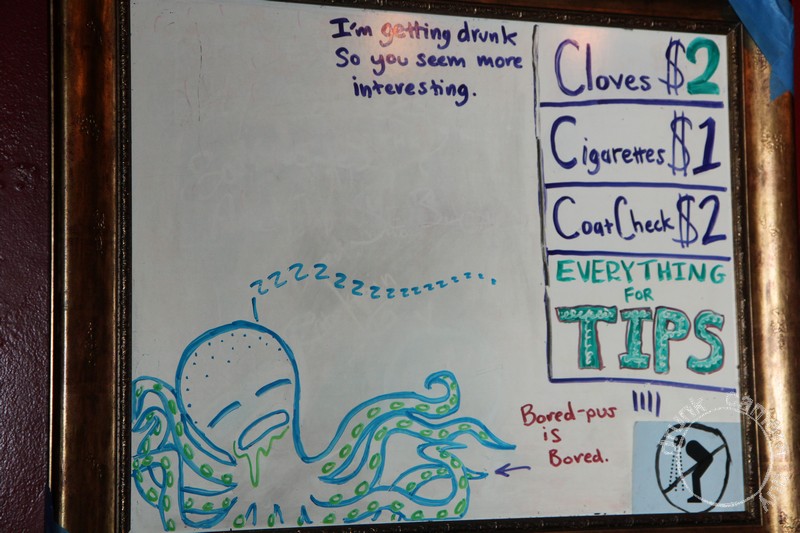 I'm getting drunk
So you seem more
interesting.
Cloves $2
Cigarettes $1
Coat Check $2
EVERYTHING
FOR
TIPS
zzzzzzzzzzzzzzzzzzz
Bored-pus
is
Bored.